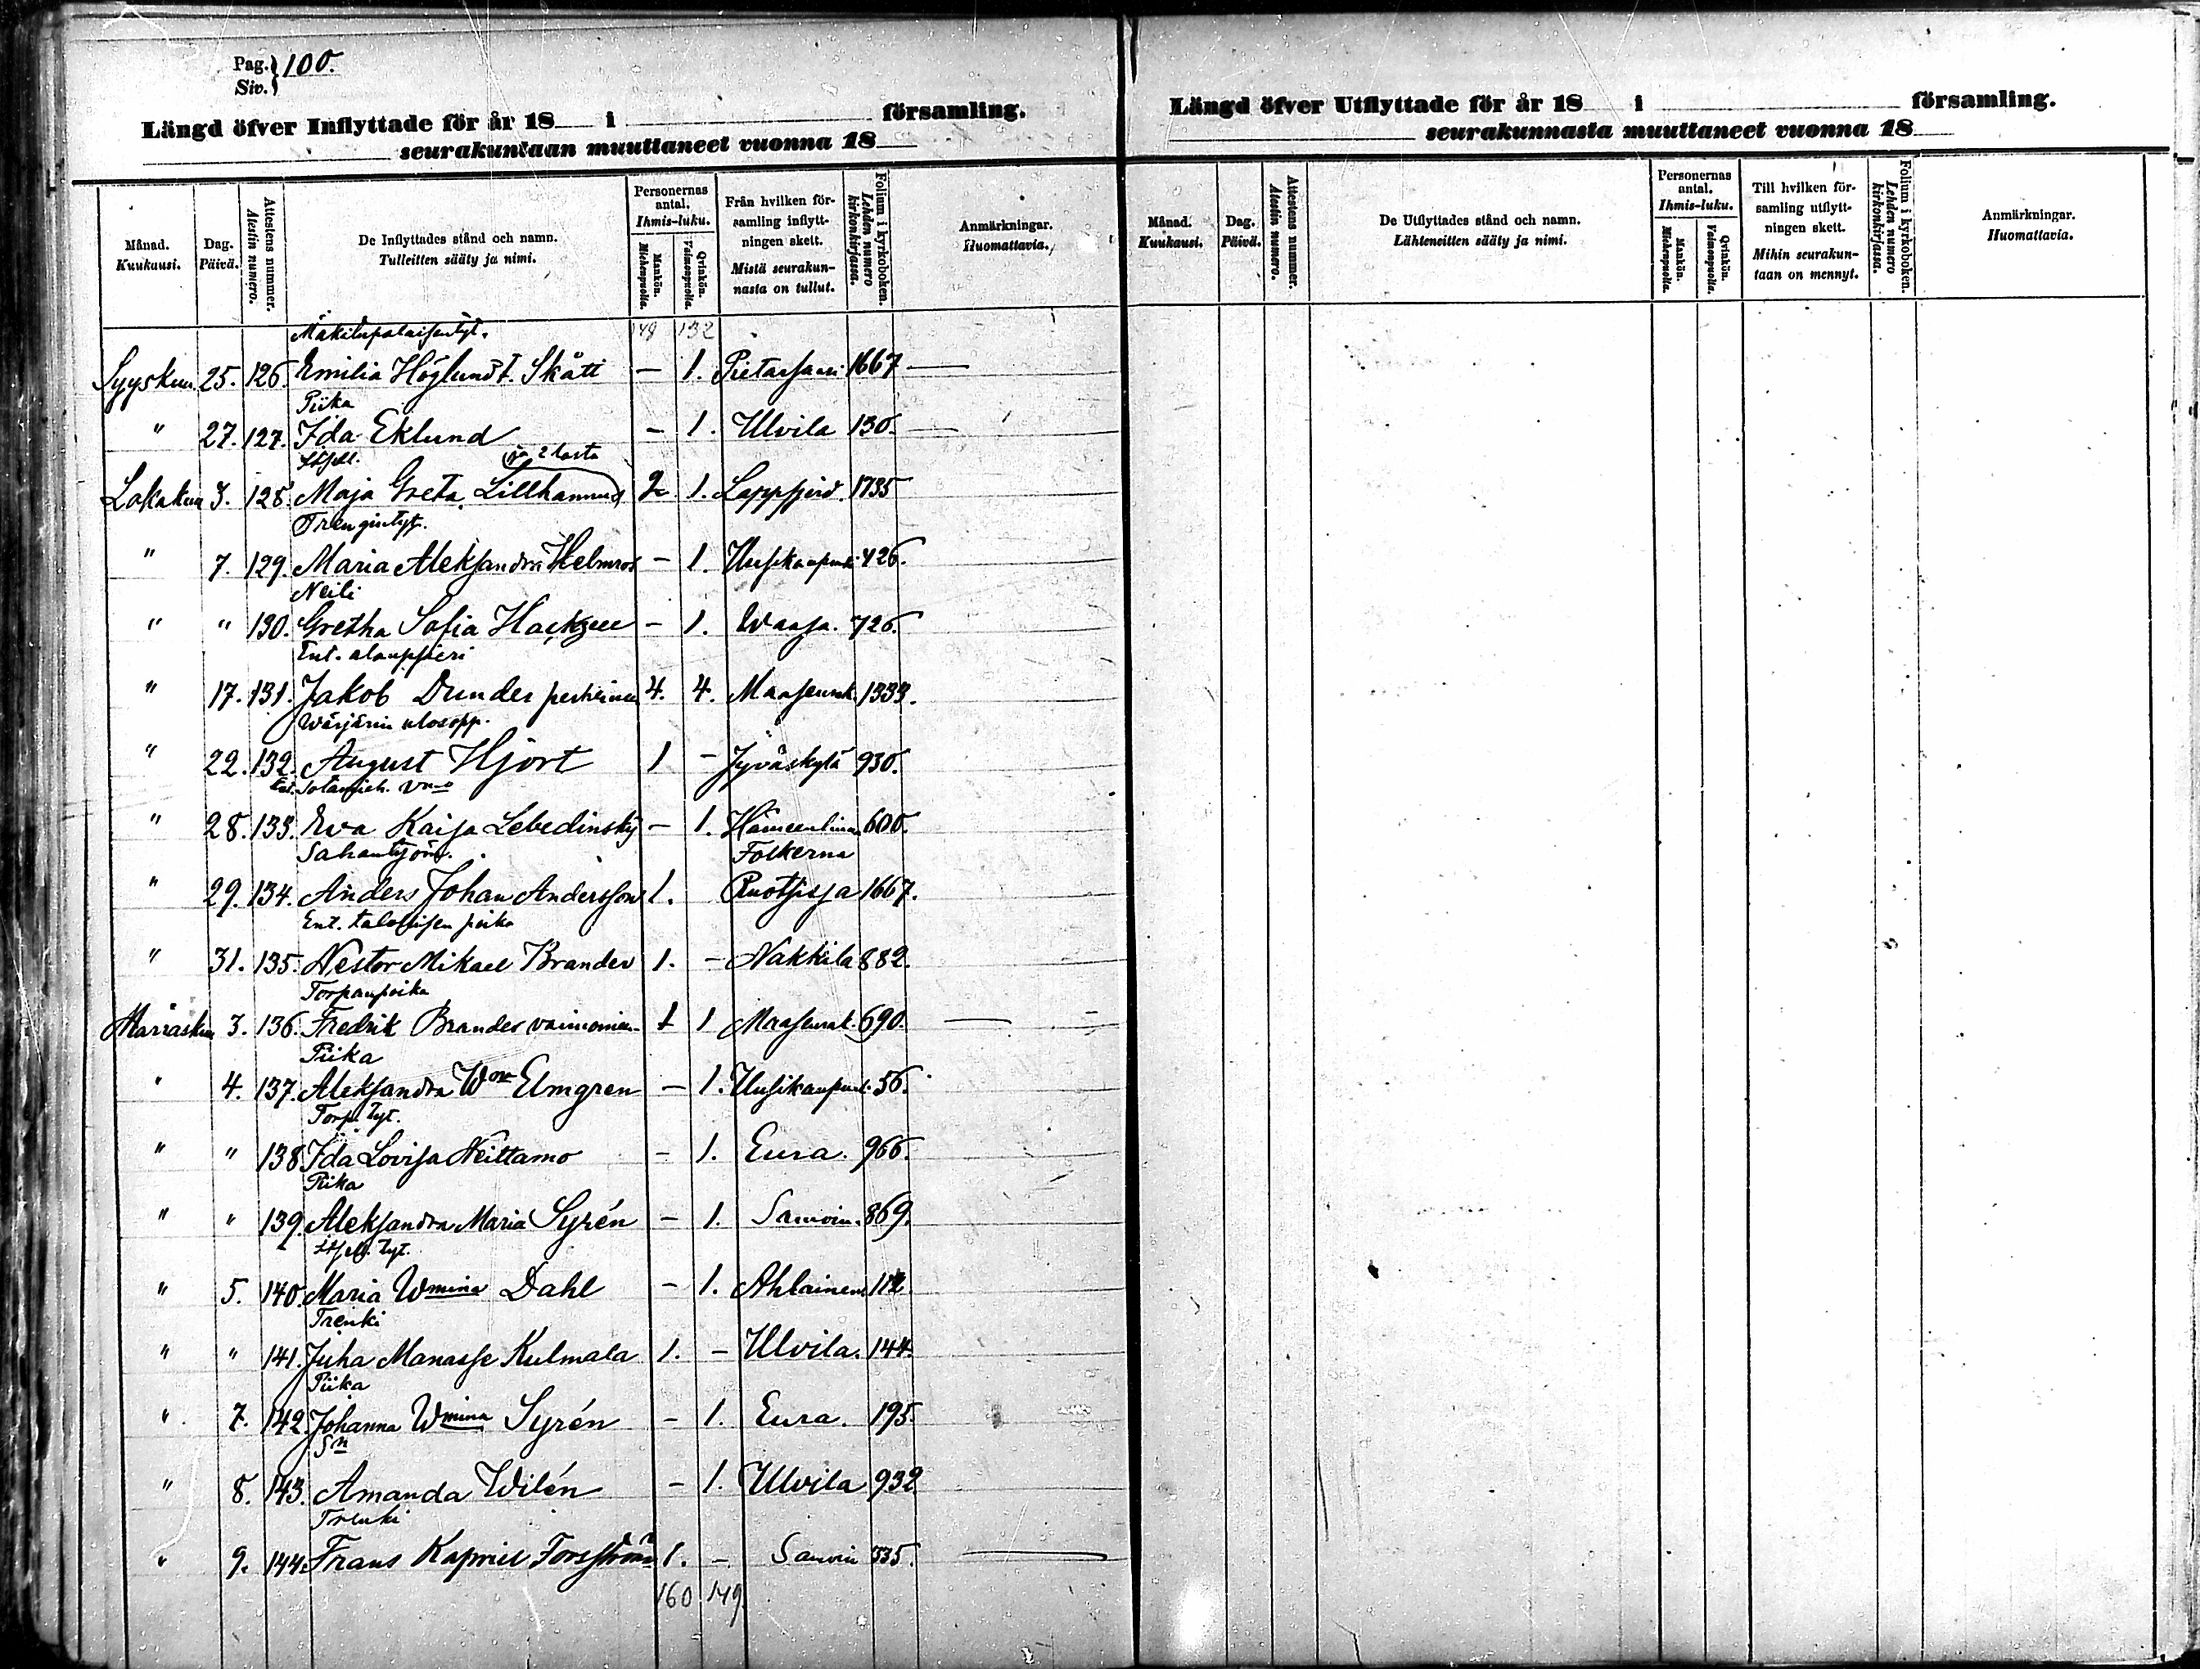 Pag. 100.
Siv.
Längd öfver Inflyttade för år 18 i församling.
seurakuntaan muuttaneet vuonna 18
Månad. Kuukausi.
Dag. Päivä.
Attestens nummer. Atestin numero.
De Inflyttades stånd och namn. Tulleitten sääty ja nimi.
Personernas antal. Ihmis-luku.
Mankön. Miehenpuolta.
Qvinkön. Vaimonpuolta.
Från hvilken församling inflyttningen skett. Mistä seurakunnasta on tullut.
Folium i kyrkoboken. Lehden numero kirkonkirjassa.
Anmärkningar. Huomattavia.
149 132
Syyskuu 25. 126. Emilia Höglund t. Skått — 1. Pietarsaari 1667 —
Piika
" 27. 127. Ida Eklund — 1. Ulvila 130. —
ja 2 lasta
Lokakuu 3. 128. Maja Greta Lillhannus 2 1. Lappfjerd. 1735
Trengintyt.
" 7. 129. Maria Aleksandra Helmros — 1. Uusikaupunki 426.
Neiti
" " 130. Gretha Sofia — 1. Waasa. 726.
Ent. alaupsieri
" 17. 131. Jakob Dunder perheineen 4. 4. Maaseurak. 1333.
Wärjärin ulosopp.
" 22. 132. August Hjort 1 — Jyväskylä 930.
Ent. Sotamieh. vmo
" 28. 133. Eva Kaisa Lebedinsky — 1. Hämeenlinna 600.
Sahantyöm. Folkerna
" 29. 134. Anders Johan Andersson 1. Ruotsissa 1667.
Ent. talollisen poika
" 31. 135. Nestor Mikael Brander 1. — Nakkila 882.
Torpanpoika
Marraskuu 3. 136. Fredrik Brander vaimonien 1 1 Maaseurak. 690. —
Piika
" 4. 137. Aleksandra Wna Elmgren — 1. Uusikaupunki 56.
Torp. tyt.
" " 138 Ida Lovisa Neittamo — 1. Eura. 966.
Piika
" " 139. Aleksandra Maria Syrén — 1. 869.
Itsell. tyt.
" 5. 140. Maria Wmina Dahl — 1. Ahlainen 112
Trenki
" " 141. Juha Manasse Kulmala 1. — Ulvila. 144.
Piika
" 7. 142. Johanna Wmina Syrén — 1. Eura. 195.
Sn
" 8. 143. Amanda Wilén — 1. Ulvila 932
Trenki
" 9. 144. Frans Kapriel Forsström 1. — 335. —
160 149.
Längd öfver Utflyttade för år 18 i församling.
seurakunnasta muuttaneet vuonna 18
Månad. Kuukausi.
Dag. Päivä.
Attestens nummer. Atestin numero.
De Utflyttades stånd och namn. Lähteneitten sääty ja nimi.
Personernas antal. Ihmis-luku.
Mankön. Miehenpuolta.
Qvinkön. Vaimonpuolta.
Till hvilken församling utflyttningen skett. Mihin seurakuntaan on mennyt.
Folium i kyrkoboken. Lehden numero kirkonkirjassa.
Anmärkningar. Huomattavia.